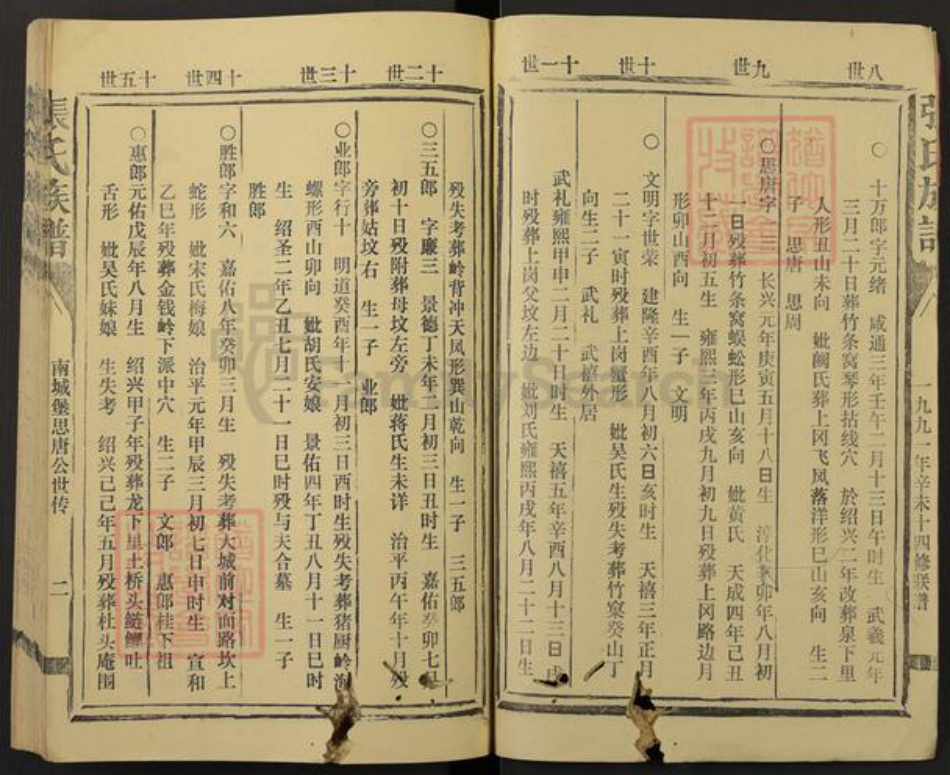 八世
九世
十世
十一世
○ 十万郎字元绪 咸通三年壬午二月十三日午时生 武羲元年
三月二十日葬竹条窝琴形拈线穴 於绍兴二年改葬泉下里
人形丑山未向 妣阙氏葬上冈飞风落洋形巳山亥向 生二
子 思唐 思周
○思唐字十三 长兴元年庚寅五月十八日生 淳化 卯年八月初
一日殁葬竹条窝蜈蚣形巳山亥向 妣黄氏 天成四年己丑
十二月初五生 雍熙三年丙戌九月初九日殁葬上冈路边月
形卯山酉向 生一子 文明
○ 文明字世荣 建隆辛酉年八月初六日亥时生 天禧三年正月
二十一寅时殁葬上岗蟹形 妣吴氏生殁失考葬竹窠癸山丁
向生二子 武礼 武禧外居
武礼雍熙甲申二月二十日时生 天禧五年辛酉八月十三日戌
时殁葬上岗父坟左边 妣刘氏雍熙丙戌年八月二十二日生
一九九一年辛未十四修联谱
十二世
十三世
十四世
十五世
殁失考葬岭背冲天凤形巽山乾向 生一子 三五郎
○三五郎 字廉三 景德丁未年二月初三日丑时生 嘉佑癸卯七月
初十日殁附葬母坟左旁 妣蒋氏生未详 治平丙午年十月殁
旁葬姑坟右 生一子 业郎
○业郎字行十 明道癸酉年十一月初三日酉时生殁失考葬猪厨岭海
螺形酉山卯向 妣胡氏安娘 景佑四年丁丑八月十一日巳时
生 绍圣二年乙丑七月二十一日巳时殁与夫合墓 生一子
胜郎
○胜郎字和六 嘉佑八年癸卯三月生 殁失考葬大城前对面路坎上
蛇形 妣宋氏梅娘 治平元年甲辰三月初七日申时生 宣和
乙巳年殁葬金钱岭下派中穴 生二子 文郎 惠郎桂下祖
○惠郎元佑戊辰年八月生 绍兴甲子年殁葬龙下里土桥头鲢鳙吐
舌形 妣吴氏妹娘 生失考 绍兴己巳年五月殁葬杜头庵围
張氏族譜
南城堡思唐公世传
二
FamilySearch